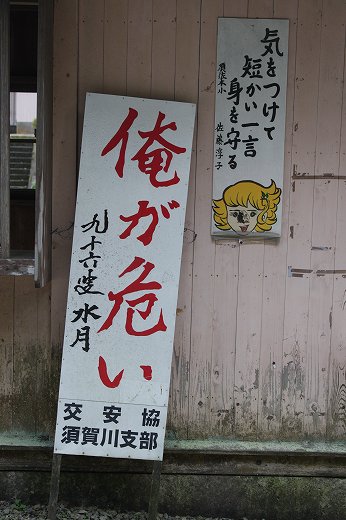 気をつけて
短かい一言
身を守る
佐藤淳子
俺が危い
九十六叟
水月
交安協
須賀川支部